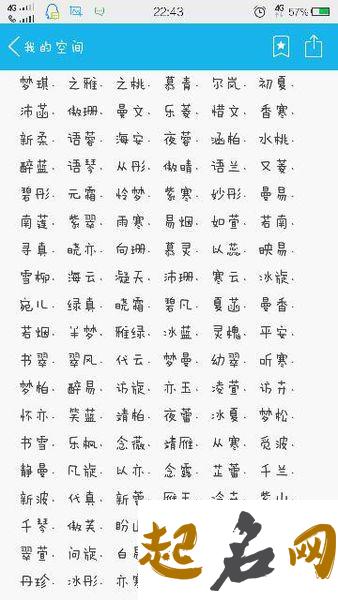 4G 4G 22:43 4G 57%
我的空间
梦琪、之雅、之桃、慕青、尔岚、初夏、
沛菡、傲珊、曼文、乐菱、惜文、香寒、
新柔、语蓉、海安、夜蓉、涵柏、水桃、
醉蓝、语琴、从彤、傲晴、语兰、又菱、
碧彤、元霜、怜梦、紫寒、妙彤、曼易、
南莲、紫翠、雨寒、易烟、如萱、若南、
寻真、晓亦、向珊、慕灵、以蕊、映易、
雪柳、海云、凝天、沛珊、寒云、冰旋、
宛儿、绿真、晓霜、碧凡、夏菡、曼香、
若烟、半梦、雅绿、冰蓝、灵槐、平安、
书翠、翠风、代云、梦曼、幼翠、听寒、
梦柏、醉易、访旋、亦玉、凌萱、访卉、
怀亦、笑蓝、靖柏、夜蕾、冰夏、梦松、
书雪、乐枫、念薇、靖雁、从寒、觅波、
静曼、凡旋、以亦、念露、芷蕾、千兰、
新波、代真、新蕾、雁玉、冷卉、紫山、
千琴、傲芙、盼山
翠萱、问旋、白易
丹珍、冰彤、亦寒
起名网